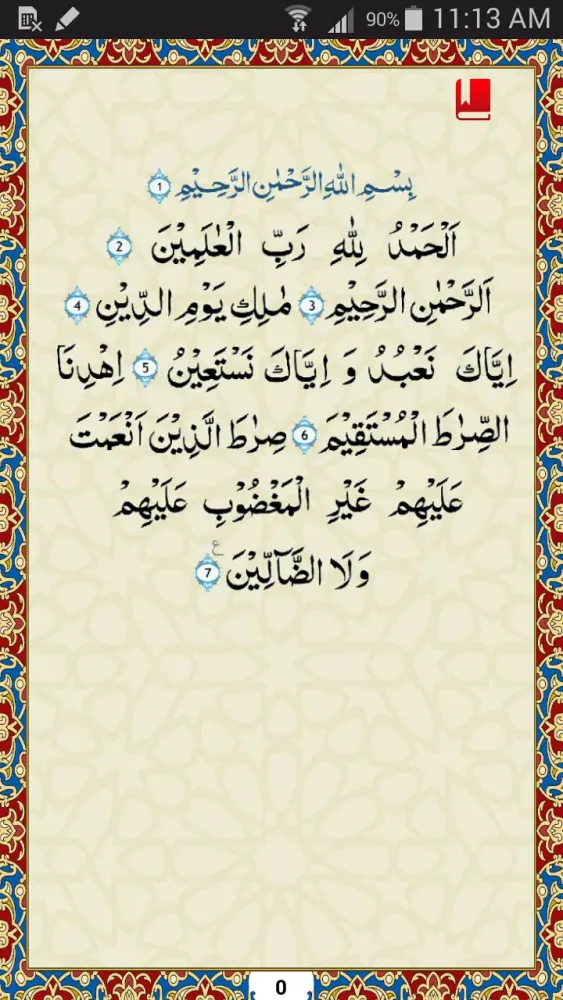 90% 11:13 AM
بِسْمِ اللهِ الرَّحْمٰنِ الرَّحِيْمِ ﴿1﴾
اَلْحَمْدُ لِلّٰهِ رَبِّ الْعٰلَمِيْنَ ﴿2﴾
اَلرَّحْمٰنِ الرَّحِيْمِ ﴿3﴾ مٰلِكِ يَوْمِ الدِّيْنِ ﴿4﴾
اِيَّاكَ نَعْبُدُ وَ اِيَّاكَ نَسْتَعِيْنُ ﴿5﴾ اِهْدِنَا
الصِّرٰطَ الْمُسْتَقِيْمَ ﴿6﴾ صِرٰطَ الَّذِيْنَ اَنْعَمْتَ
عَلَيْهِمْ غَيْرِ الْمَغْضُوْبِ عَلَيْهِمْ
وَلَا الضَّآلِّيْنَ ع ﴿7﴾
0